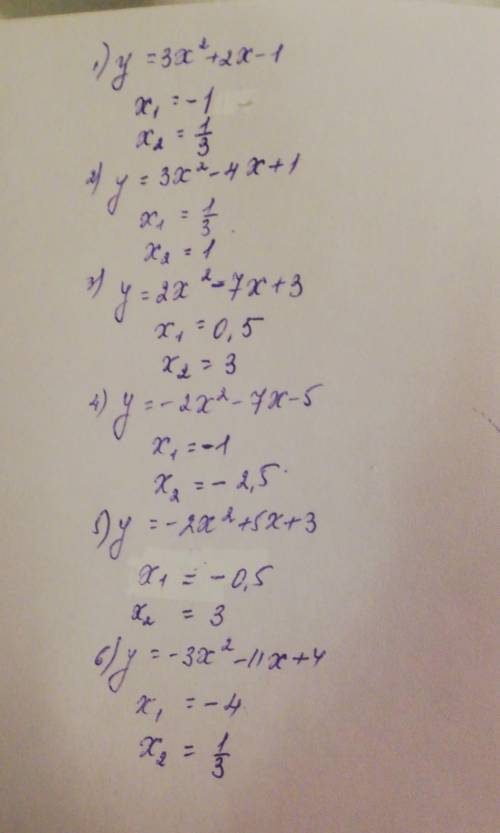 1) y = 3x² + 2x - 1
x₁ = -1
x₂ = 1/3
2) y = 3x² - 4x + 1
x₁ = 1/3
x₂ = 1
3) y = 2x² - 7x + 3
x₁ = 0,5
x₂ = 3
4) y = -2x² - 7x - 5
x₁ = -1
x₂ = -2,5
5) y = -2x² + 5x + 3
x₁ = -0,5
x₂ = 3
6) y = -3x² - 11x + 4
x₁ = -4
x₂ = 1/3